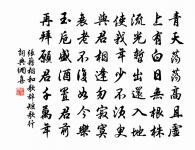 青天蕩蕩高且虛
上有白日無根株
流光暫出還入地
使我年少不須臾
與君相逢勿寂寞
衰老不復如今樂
玉卮盛酒置君前
再拜願君千萬年
張籍相和歌辭短歌行
詞典網